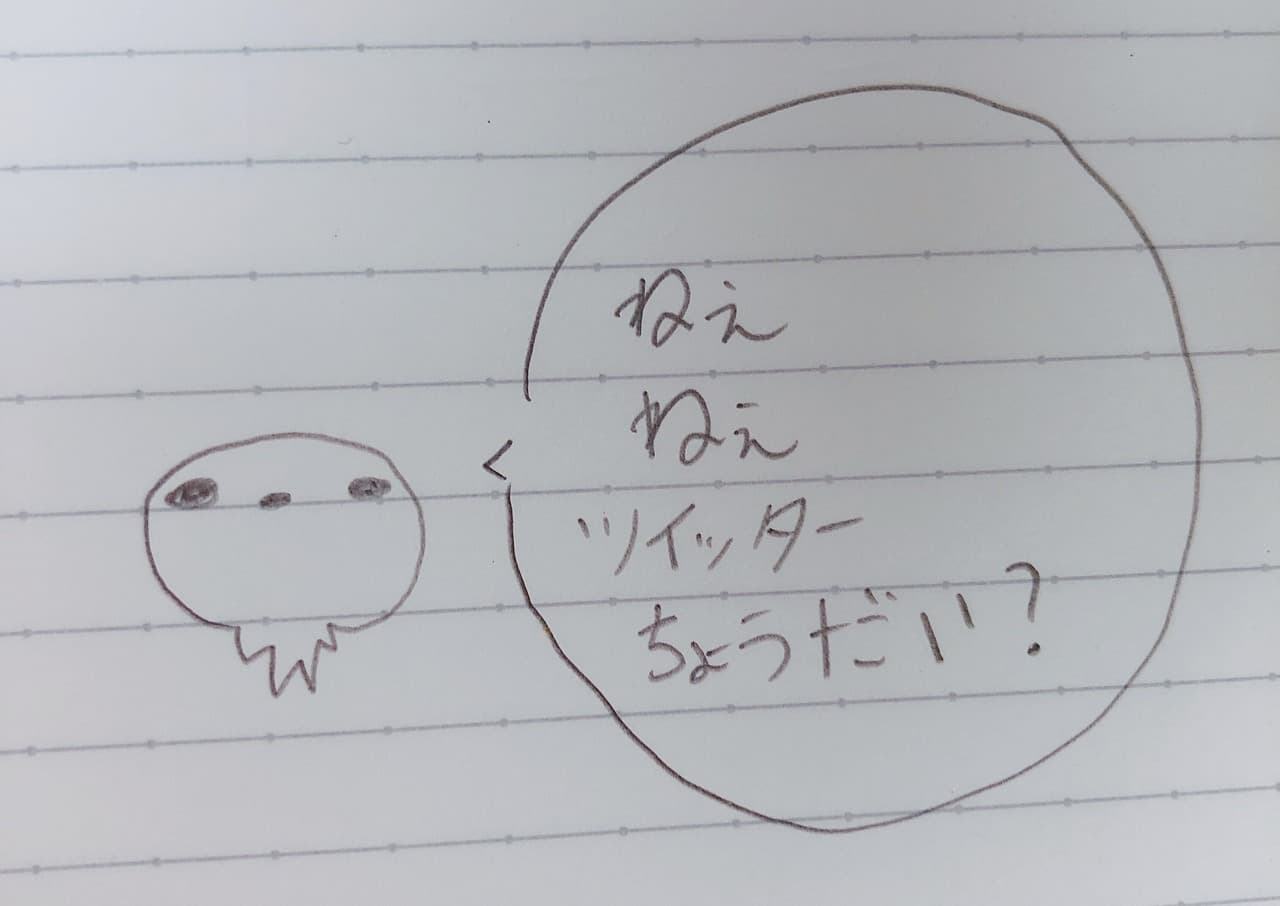 ねえ
ねえ
ツイッター
ちょうだい?